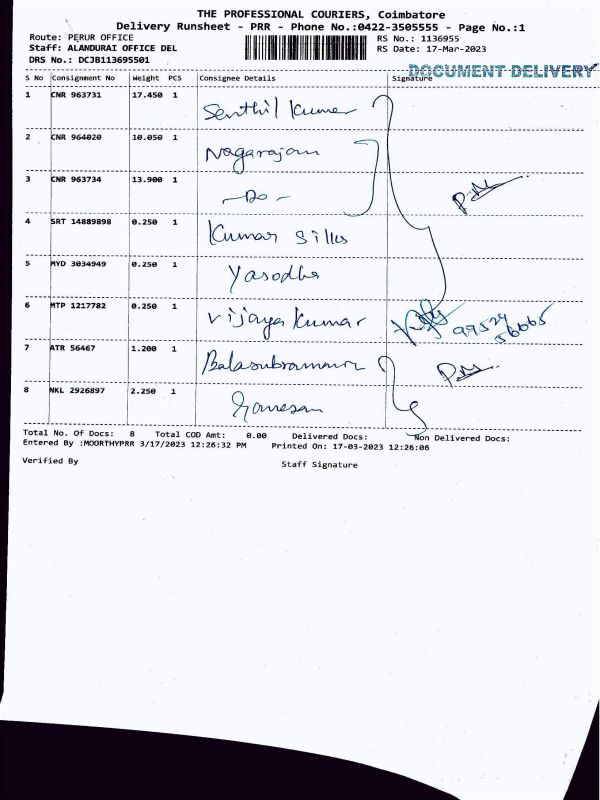 THE PROFESSIONAL COURIERS, Coimbatore
Delivery Runsheet - PRR - Phone No.:0422-3505555 - Page No.:1
Route: PERUR OFFICE RS No.: 1136955
Staff: ALANDURAI OFFICE DEL RS Date: 17-Mar-2023
DRS No.: DCJB113695501
DOCUMENT DELIVERY
S No Consignment No Weight PCS Consignee Details Signature
1 CNR 963731 17.450 1 Senthil Kumar
2 CNR 964020 10.050 1 Nagarajan
3 CNR 963734 13.900 1 -Do-
4 SRT 14889898 0.250 1 Kumar Silks
5 MYD 3034949 0.250 1 Yasodha
6 MTP 1217782 0.250 1 Vijaya Kumar
7 ATR 56467 1.200 1
8 NKL 2926897 2.250 1 Ganesan
Total No. Of Docs: 8 Total COD Amt: 0.00 Delivered Docs: Non Delivered Docs:
Entered By :MOORTHYPRR 3/17/2023 12:26:32 PM Printed On: 17-03-2023 12:26:06
Verified By Staff Signature